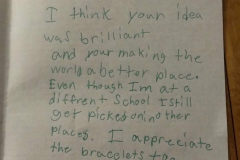 I think your idea
was brilliant
and your making the
world a better place.
Even though Im at a
diffrent School I still
get picked on in other
places. I appreciate
the bracelets too